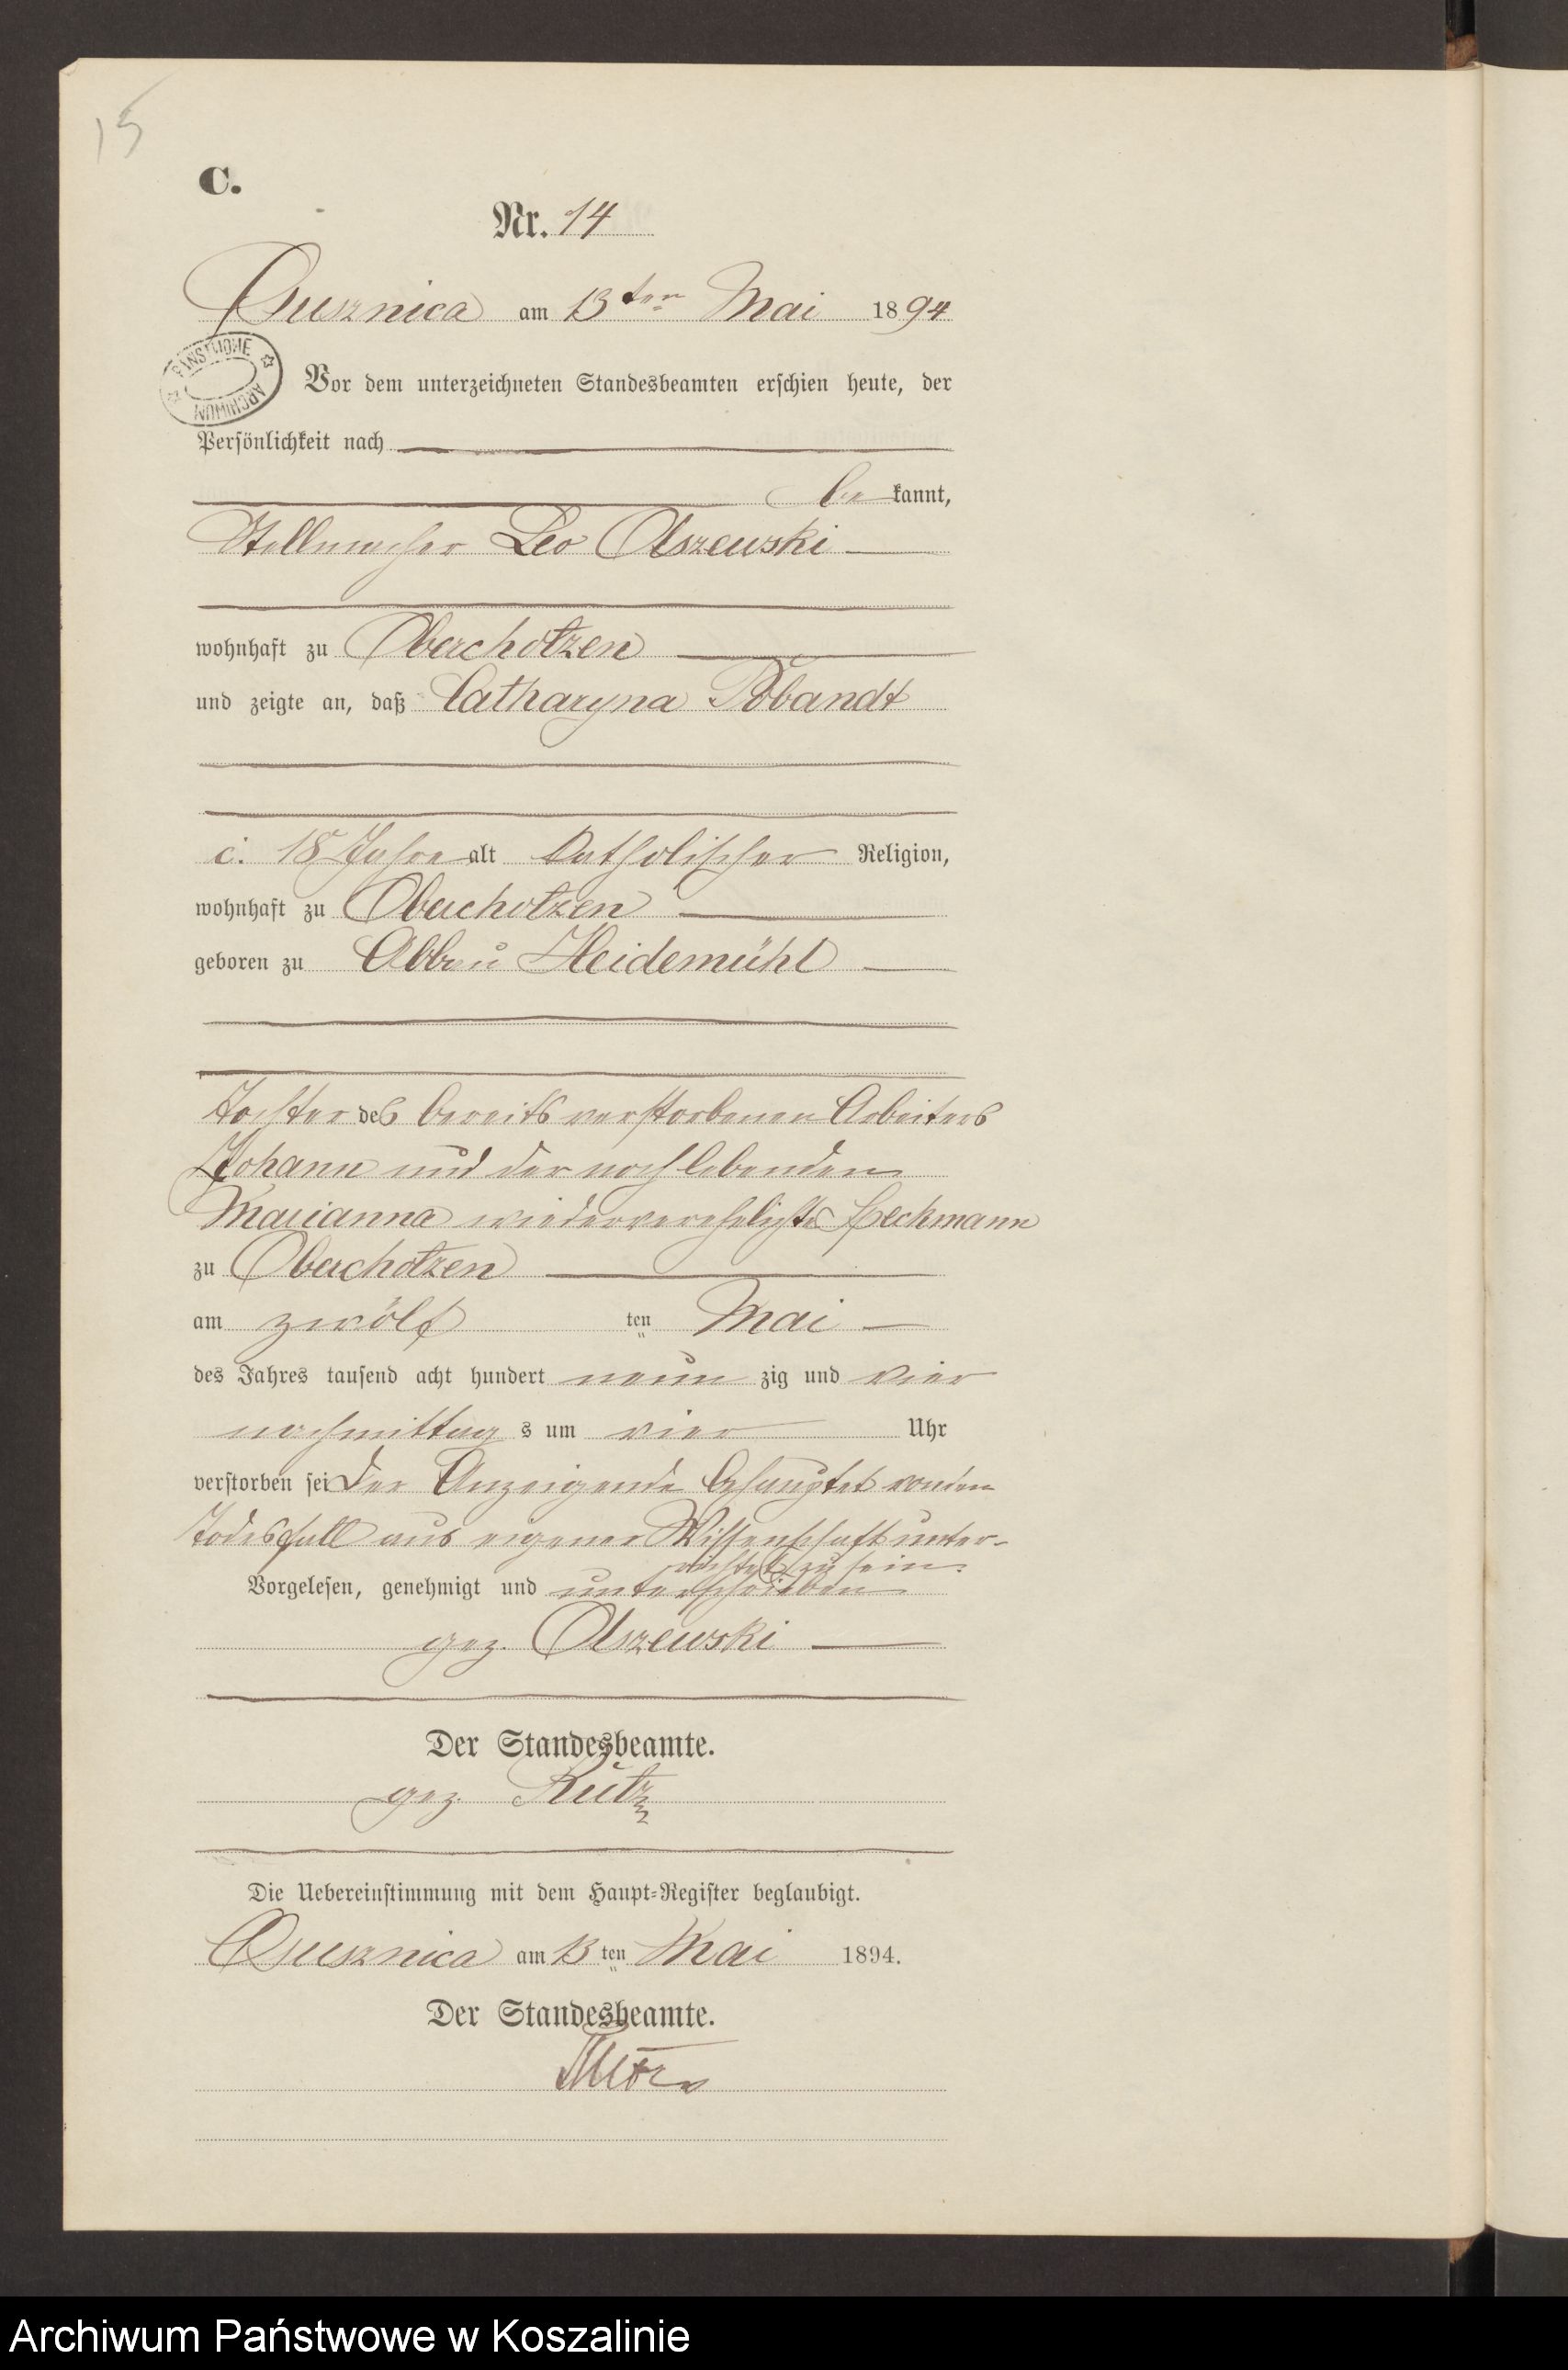 15
C.
Nr. 14
Ossusznica am 13ten Mai 1894
PAŃSTWOWE ARCHIWUM
Vor dem unterzeichneten Standesbeamten erschien heute, der
Persönlichkeit nach
be kannt,
Stellmacher Leo Olszewski
wohnhaft zu Oberchotzen
und zeigte an, daß Catharyna Pobandt
c. 18 Jahre alt Katholischer Religion,
wohnhaft zu Oberchotzen
geboren zu Abbau Heidemühl
Tochter des bereits verstorbenen Arbeiters
Johann und der noch lebenden
Marianna wiederverehelichte Speckmann
zu Oberchotzen
am zwölf ten Mai
des Jahres tausend acht hundert neun zig und vier
nachmittag s um vier Uhr
verstorben sei Der Anzeigende behauptet von dem
Todesfall aus eigener Wissenschaft unter-
richtet zu sein.
Vorgelesen, genehmigt und unterschrieben
gez. Olszewski
Der Standesbeamte.
gez. Rutz
Die Uebereinstimmung mit dem Haupt-Register beglaubigt.
Ossusznica am 13 ten Mai 1894.
Der Standesbeamte.
Archiwum Państwowe w Koszalinie